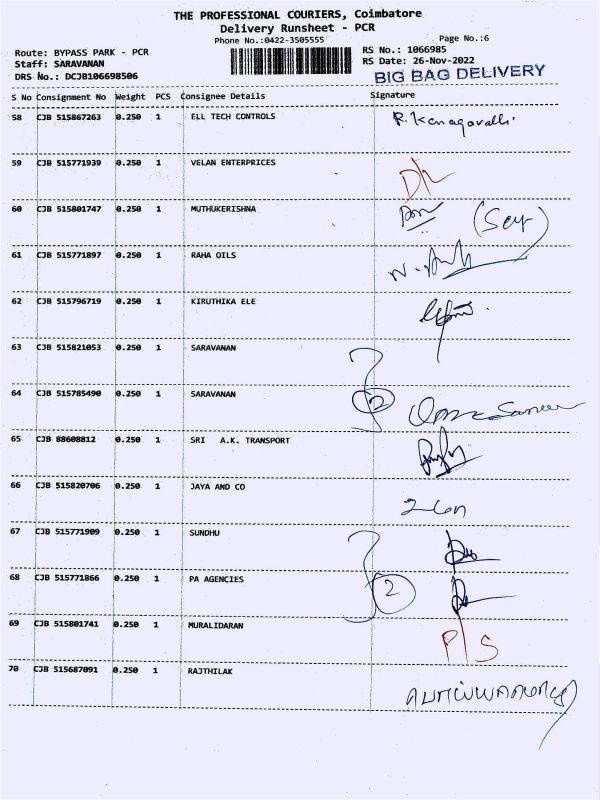 THE PROFESSIONAL COURIERS, Coimbatore
Delivery Runsheet - PCR
Phone No.:0422-3505555 Page No.:6
Route: BYPASS PARK - PCR RS No.: 1066985
Staff: SARAVANAN RS Date: 26-Nov-2022
DRS No.: DCJB106698506 BIG BAG DELIVERY
S No Consignment No Weight PCS Consignee Details Signature
58 CJB 515867263 0.250 1 ELL TECH CONTROLS R. Kanagavalli
59 CJB 515771939 0.250 1 VELAN ENTERPRICES
60 CJB 515801747 0.250 1 MUTHUKERISHNA
61 CJB 515771897 0.250 1 RAHA OILS
62 CJB 515796719 0.250 1 KIRUTHIKA ELE
63 CJB 515821053 0.250 1 SARAVANAN
64 CJB 515785490 0.250 1 SARAVANAN 2
65 CJB 88608812 0.250 1 SRI A.K. TRANSPORT
66 CJB 515820706 0.250 1 JAYA AND CO
67 CJB 515771909 0.250 1 SUNDHU
68 CJB 515771866 0.250 1 PA AGENCIES 2
69 CJB 515801741 0.250 1 MURALIDARAN P/S
70 CJB 515687091 0.250 1 RAJTHILAK